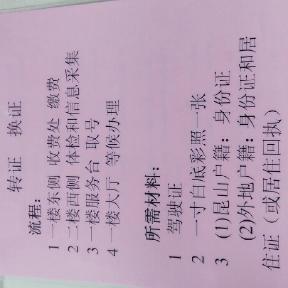 转证 换证
流程：
1 一楼东侧 收费处 缴费
2 二楼西侧 体检和信息采集
3 一楼服务台 取号
4 一楼大厅 等候办理
所需材料：
1 驾驶证
2 一寸白底彩照一张
3 (1)昆山户籍：身份证
(2)外地户籍：身份证和居
住证（或居住回执）